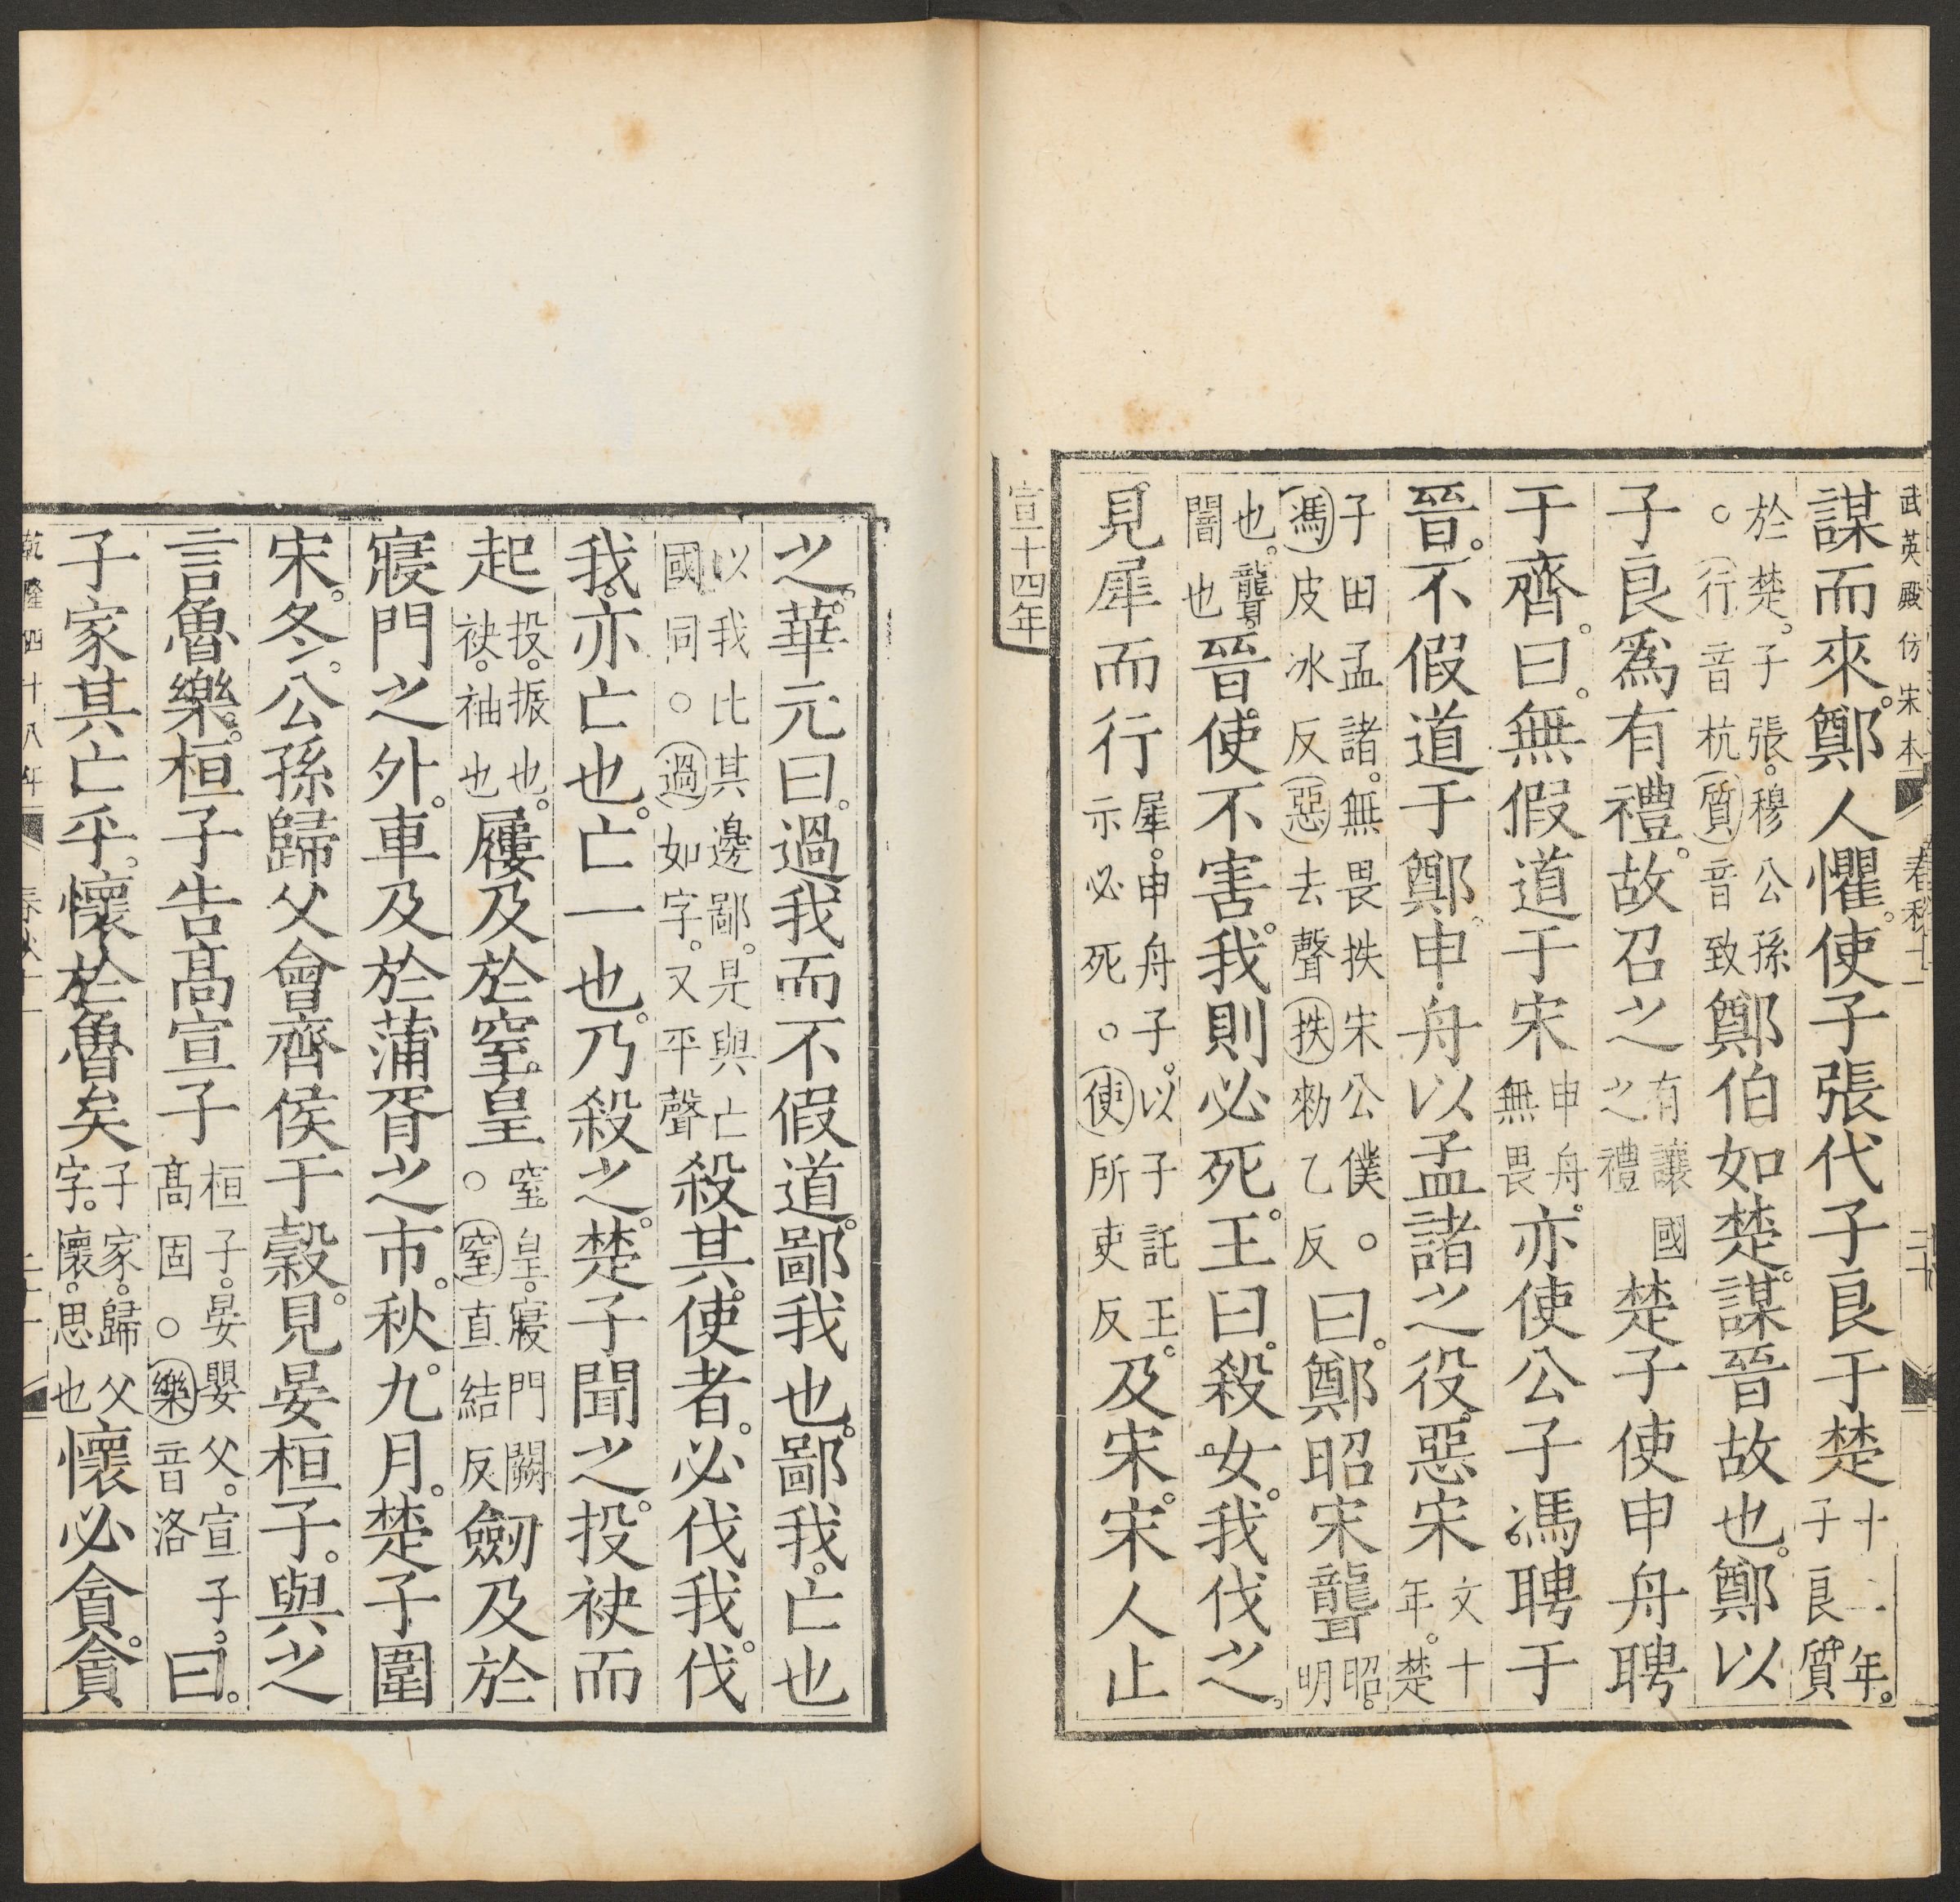 武英殿仿宋本 春秋十一 二十
謀而來鄭人懼使子張代子良于楚十二年子良質
於楚子張穆公孫○行音杭質音致鄭伯如楚謀晉故也鄭以
子良爲有禮故召之有讓國之禮楚子使申舟聘
于齊曰無假道于宋申舟無畏亦使公子馮聘于
晉不假道于鄭申舟以孟諸之役惡宋文十年楚
子田孟諸無畏抶宋公僕○馮皮冰反惡去聲抶勑乙反曰鄭昭宋聾昭明
也聾闇也晉使不害我則必死王曰殺女我伐之
見犀而行犀申舟子以子託王示必死○使所吏反及宋宋人止
宣十四年
之華元曰過我而不假道鄙我也鄙我亡也
以我比其邊鄙是與亡國同○過如字又平聲殺其使者必伐我伐
我亦亡也亡一也乃殺之楚子聞之投袂而
起投振也袂袖也屨及於窒皇窒皇寢門闕○窒直結反劒及於
寢門之外車及於蒲胥之市秋九月楚子圍
宋冬公孫歸父會齊侯于穀見晏桓子與之
言魯樂桓子告高宣子桓子晏嬰父宣子高固○樂音洛曰
子家其亡乎懷於魯矣子家歸父字懷思也懷必貪貪
乾隆四十八年 春秋十一 二十一